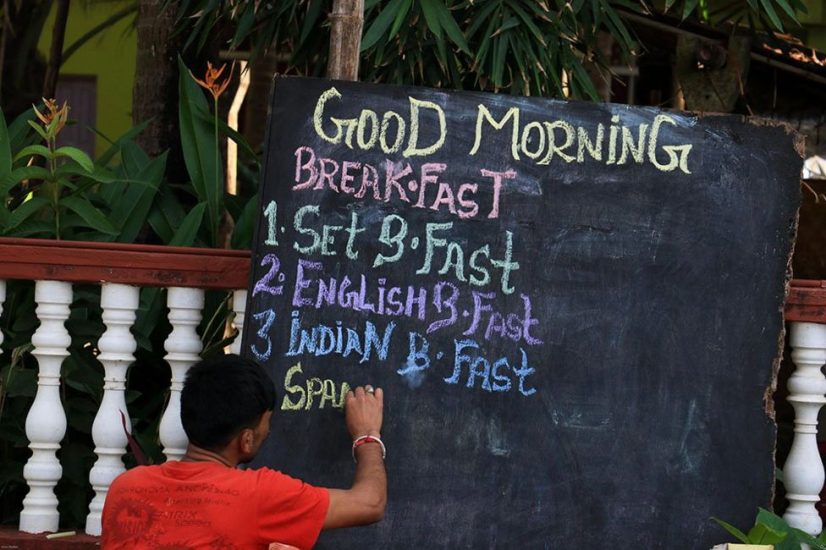 GOOD MORNING
BREAK.FAST
1. Set B.Fast
2. ENGLISH B.Fast
3 INDIAN B.Fast
SPAN